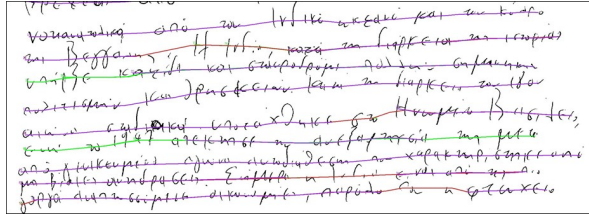 νοτιανατολικά από τον Ινδικό ωκεανό και τον Κόλπο
της Βεγγάλης. Η Ινδία, κατά την διάρκεια της ιστορίας
υπήρξε κοιτίδα και σταυροδρόμι πολλών σημαντικών
πολιτισμών και θρησκειών. Κατά τη διάρκεια του 18ου
αιώνα σταδιακά υποτάχθηκε στο Ηνωμένο Βασίλειο,
ενώ το 1947 απέκτησε την ανεξαρτησία της μετά
από γενικευμένο αγώνα που χαρακτηρίστηκε από
μη βίαιες αντιδράσεις. Σήμερα η Ινδία είναι από τις πιο
γοργά αναπτυσσόμενες οικονομίες, παρόλο η φτώχεια